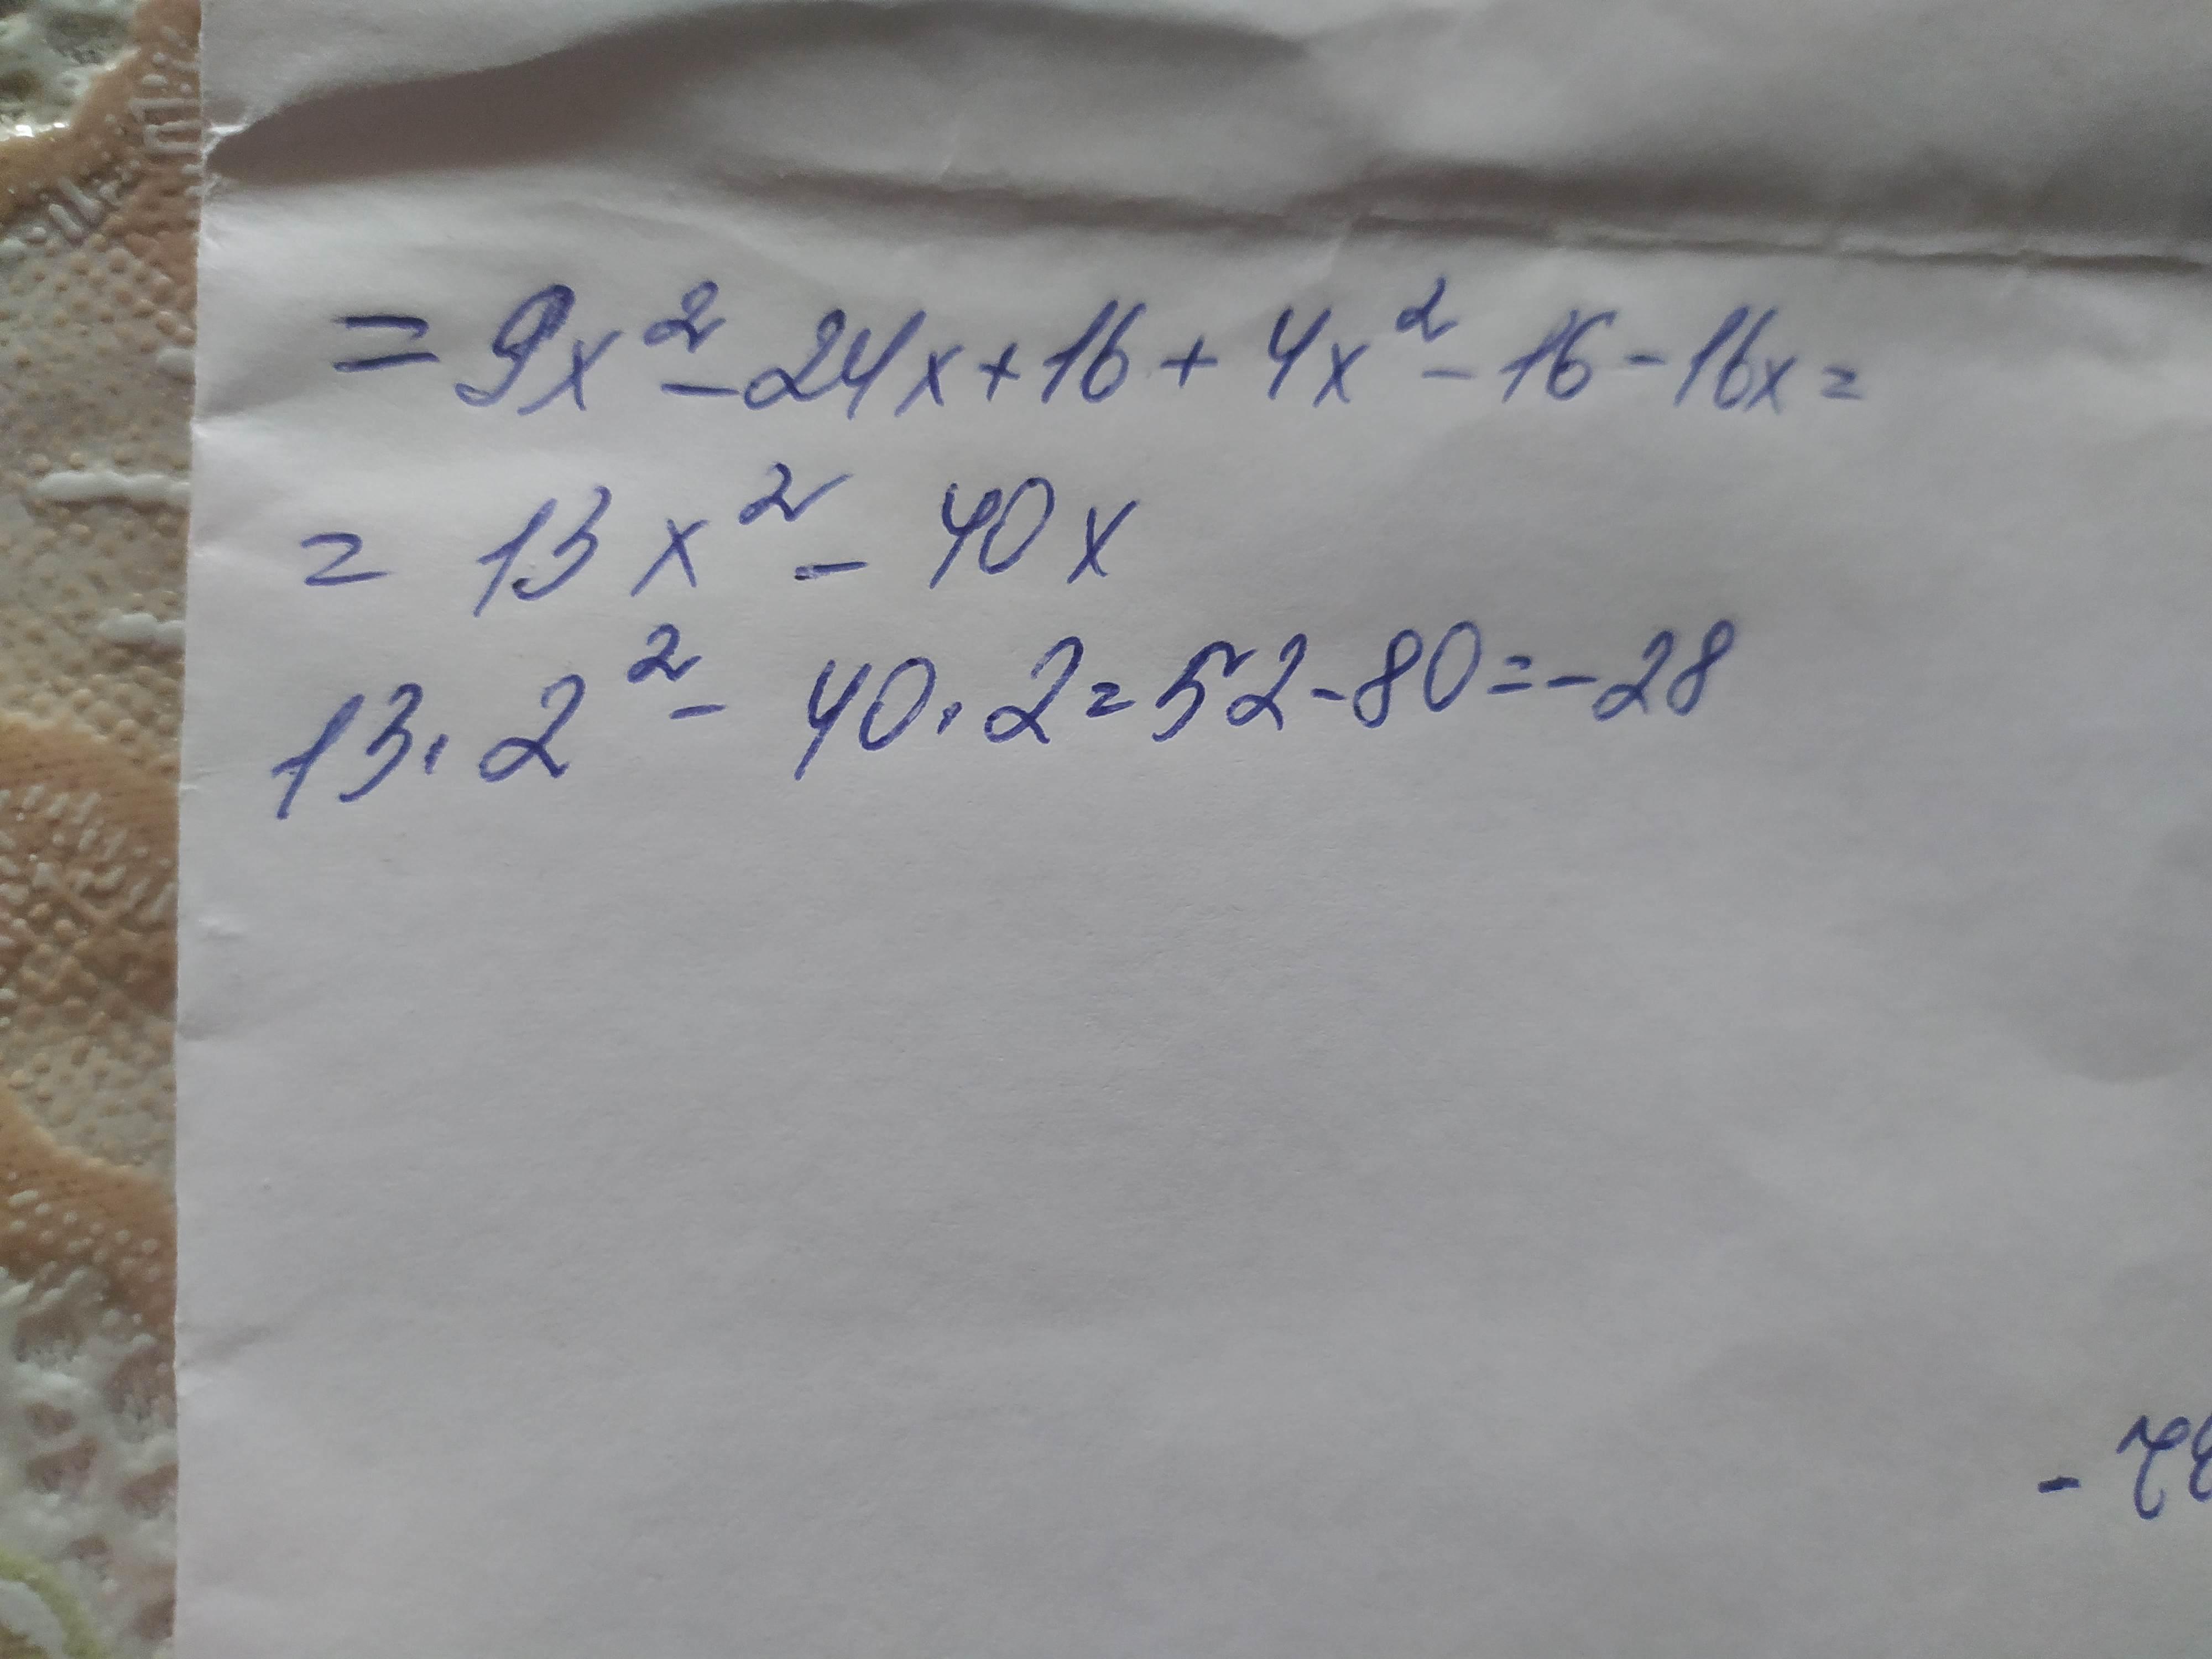 = 9x² - 24x + 16 + 4x² - 16 - 16x =
= 13x² - 40x
13 · 2² - 40 · 2 = 52 - 80 = -28